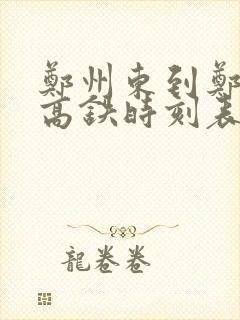 鄭州東到鄭
高鉄時刻表
龍卷卷